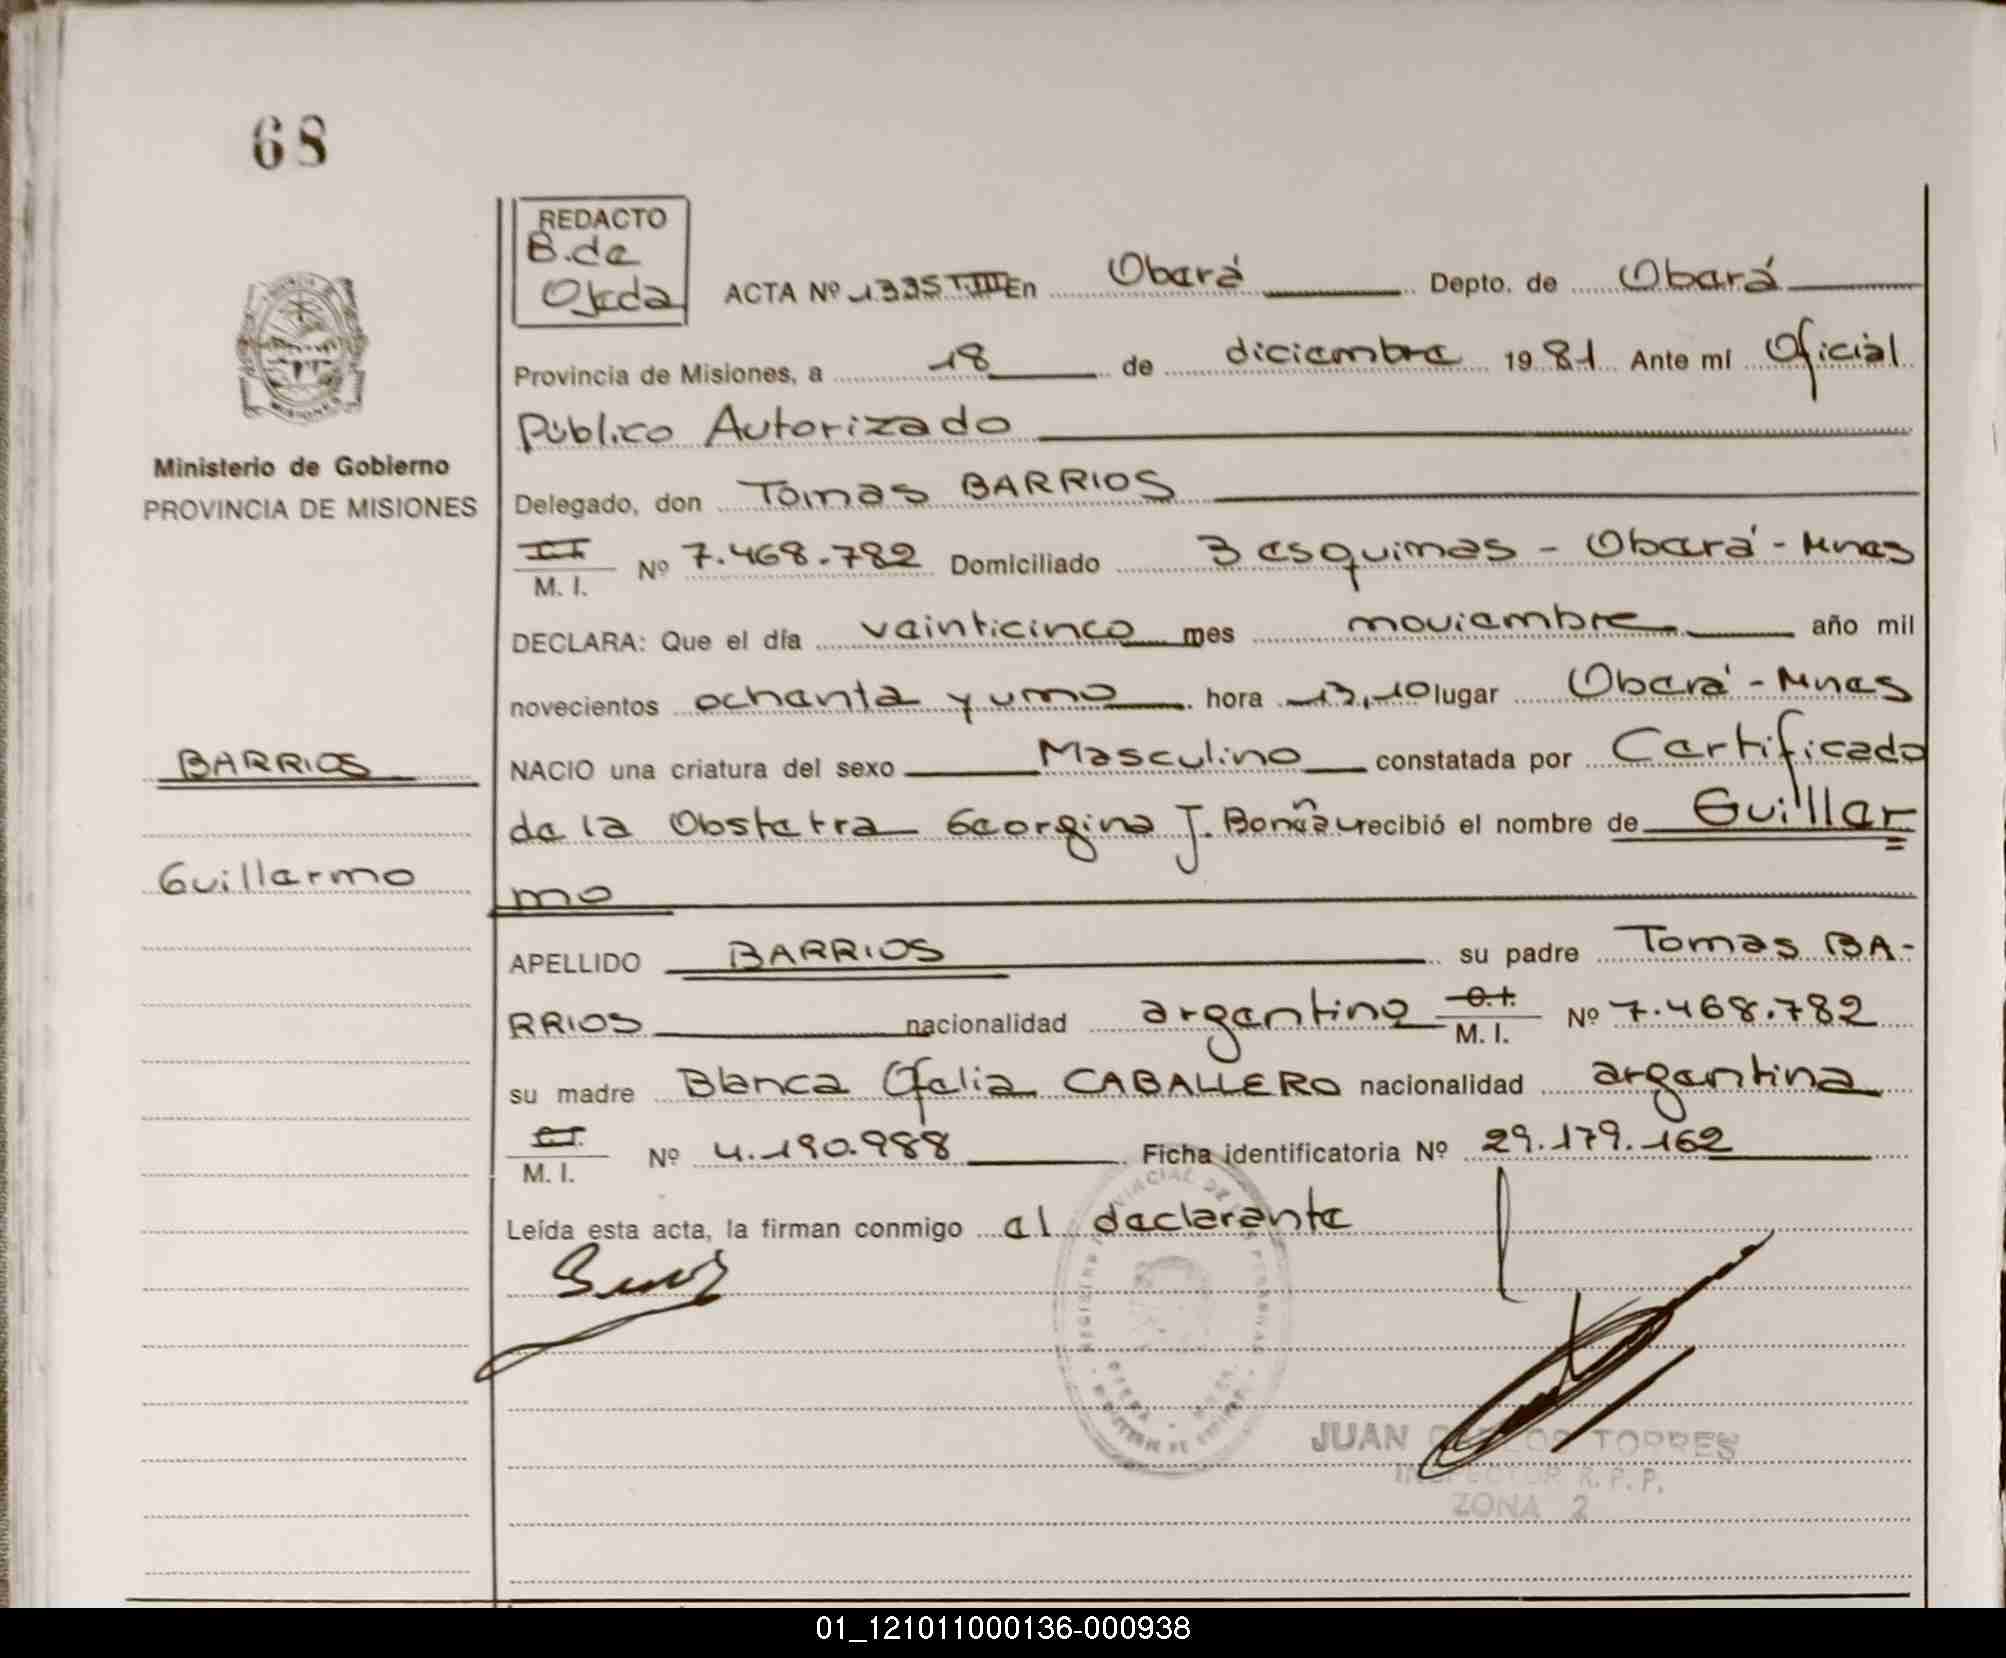 68
REDACTO
B.de
Ojeda
ACTA Nº 1335 T.III En Oberá Depto. de Oberá
Provincia de Misiones, a 18 de diciembre 1981 Ante mí Oficial
Público Autorizado
Ministerio de Gobierno
PROVINCIA DE MISIONES
Delegado, don Tomas BARRIOS
M. I. Nº 7.468.782 Domiciliado 3 esquinas - Oberá - Mnes
DECLARA: Que el día veinticinco mes noviembre año mil
novecientos ochenta y uno hora 13,10 lugar Oberá - Mnes
BARRIOS
NACIO una criatura del sexo Masculino constatada por Certificado
de la Obstetra Georgina J. recibió el nombre de Guiller
Guillermo
mo
APELLIDO BARRIOS su padre Tomas BA-
RRIOS nacionalidad argentino M. I. Nº 7.468.782
su madre Blanca Ofelia CABALLERO nacionalidad argentina
M. I. Nº 4.190.988 Ficha identificatoria Nº 29.179.162
Leída esta acta, la firman conmigo el declarante
JUAN CARLOS TORRES
INSPECTOR R.P.P.
ZONA 2
01_121011000136-000938